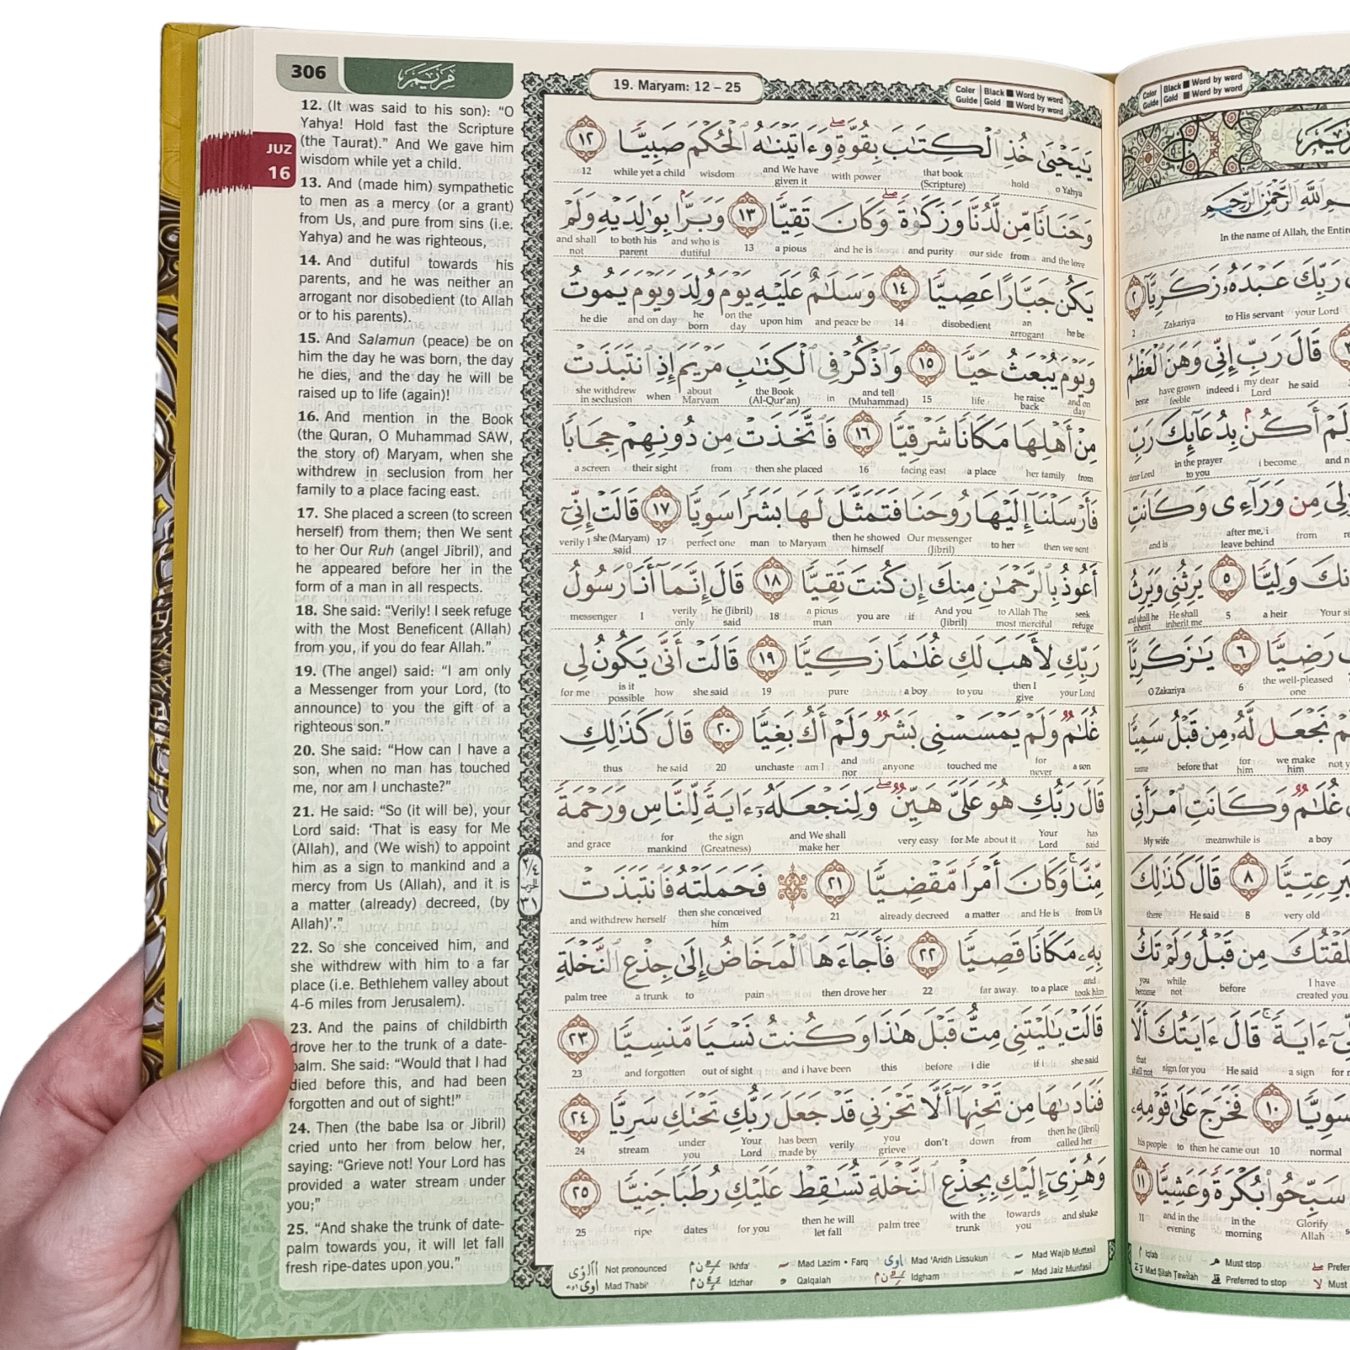 306
مريم
JUZ
16
12. (It was said to his son): “O
Yahya! Hold fast the Scripture
(the Taurat).” And We gave him
wisdom while yet a child.
13. And (made him) sympathetic
to men as a mercy (or a grant)
from Us, and pure from sins (i.e.
Yahya) and he was righteous,
14. And dutiful towards his
parents, and he was neither an
arrogant nor disobedient (to Allah
or to his parents).
15. And Salamun (peace) be on
him the day he was born, the day
he dies, and the day he will be
raised up to life (again)!
16. And mention in the Book
(the Quran, O Muhammad SAW,
the story of) Maryam, when she
withdrew in seclusion from her
family to a place facing east.
17. She placed a screen (to screen
herself) from them; then We sent
to her Our Ruh (angel Jibril), and
he appeared before her in the
form of a man in all respects.
18. She said: “Verily! I seek refuge
with the Most Beneficent (Allah)
from you, if you do fear Allah.”
19. (The angel) said: “I am only
a Messenger from your Lord, (to
announce) to you the gift of a
righteous son.”
20. She said: “How can I have a
son, when no man has touched
me, nor am I unchaste?”
21. He said: “So (it will be), your
Lord said: ‘That is easy for Me
(Allah), and (We wish) to appoint
him as a sign to mankind and a
mercy from Us (Allah), and it is
a matter (already) decreed, (by
Allah)’.”
22. So she conceived him, and
she withdrew with him to a far
place (i.e. Bethlehem valley about
4-6 miles from Jerusalem).
23. And the pains of childbirth
drove her to the trunk of a date-
palm. She said: “Would that I had
died before this, and had been
forgotten and out of sight!”
24. Then (the babe Isa or Jibril)
cried unto her from below her,
saying: “Grieve not! Your Lord has
provided a water stream under
you;”
25. “And shake the trunk of date-
palm towards you, it will let fall
fresh ripe-dates upon you.”
19. Maryam: 12 – 25
Color Guide | Black ■ Word by word
Gold ■ Word by word
يَٰيَحْيَىٰ خُذِ ٱلْكِتَٰبَ بِقُوَّةٍۖ وَءَاتَيْنَٰهُ ٱلْحُكْمَ صَبِيًّا ١٢
o Yahya hold that book (Scripture) with power and We have given it wisdom while yet a child 12
وَحَنَانًا مِّن لَّدُنَّا وَزَكَوٰةًۖ وَكَانَ تَقِيًّا ١٣ وَبَرًّۢا بِوَٰلِدَيْهِ وَلَمْ
and the love from our side and purity and he is a pious 13 and who is dutiful to both his parent and shall not
يَكُن جَبَّارًا عَصِيًّا ١٤ وَسَلَٰمٌ عَلَيْهِ يَوْمَ وُلِدَ وَيَوْمَ يَمُوتُ
he be an arrogant disobedient 14 and peace be upon him on the day he born and on day he die
وَيَوْمَ يُبْعَثُ حَيًّا ١٥ وَٱذْكُرْ فِى ٱلْكِتَٰبِ مَرْيَمَ إِذِ ٱنتَبَذَتْ
and on day he raise back life 15 and tell (Muhammad) in the Book (Al-Qur'an) about Maryam when she withdrew in seclusion
مِنْ أَهْلِهَا مَكَانًا شَرْقِيًّا ١٦ فَٱتَّخَذَتْ مِن دُونِهِمْ حِجَابًا
from her family a place facing east 16 then she placed from their sight a screen
فَأَرْسَلْنَآ إِلَيْهَا رُوحَنَا فَتَمَثَّلَ لَهَا بَشَرًا سَوِيًّا ١٧ قَالَتْ إِنِّىٓ
then we sent to her Our messenger (Jibril) then he showed himself to Maryam man perfect one 17 she (Maryam) said verily I
أَعُوذُ بِٱلرَّحْمَٰنِ مِنكَ إِن كُنتَ تَقِيًّا ١٨ قَالَ إِنَّمَآ أَنَا۠ رَسُولُ
seek refuge to Allah The most merciful And you (Jibril) if you are a pious man 18 he (Jibril) said verily only I messenger
رَبِّكِ لِأَهَبَ لَكِ غُلَٰمًا زَكِيًّا ١٩ قَالَتْ أَنَّىٰ يَكُونُ لِى
your Lord then I give to you a boy pure 19 she said how is it possible for me
غُلَٰمٌ وَلَمْ يَمْسَسْنِى بَشَرٌ وَلَمْ أَكُ بَغِيًّا ٢٠ قَالَ كَذَٰلِكِ
a son for never touched me anyone and nor am I unchaste 20 he said thus
قَالَ رَبُّكِ هُوَ عَلَىَّ هَيِّنٌۖ وَلِنَجْعَلَهُۥٓ ءَايَةً لِّلنَّاسِ وَرَحْمَةً
has said Your Lord about it for Me very easy and We shall make her the sign (Greatness) for mankind and grace
مِّنَّاۚ وَكَانَ أَمْرًا مَّقْضِيًّا ٢١ ۞ فَحَمَلَتْهُ فَٱنتَبَذَتْ
from Us and He is a matter already decreed 21 then she conceived him and withdrew herself
بِهِۦ مَكَانًا قَصِيًّا ٢٢ فَأَجَآءَهَا ٱلْمَخَاضُ إِلَىٰ جِذْعِ ٱلنَّخْلَةِ
and took him to a place far away 22 then drove her pain to a trunk palm tree
قَالَتْ يَٰلَيْتَنِى مِتُّ قَبْلَ هَٰذَا وَكُنتُ نَسْيًا مَّنسِيًّا ٢٣
she said if i I die before this and i have been out of sight and forgotten 23
فَنَادَىٰهَا مِن تَحْتِهَآ أَلَّا تَحْزَنِى قَدْ جَعَلَ رَبُّكِ تَحْتَكِ سَرِيًّا ٢٤
then he (Jibril) called her from down don't you grieve verily has been made by Your Lord under you stream 24
وَهُزِّىٓ إِلَيْكِ بِجِذْعِ ٱلنَّخْلَةِ تُسَٰقِطْ عَلَيْكِ رُطَبًا جَنِيًّا ٢٥
and shake towards you with the trunk palm tree then he will let fall for you dates ripe 25
Not pronounced Ikhfa' Mad Lazim • Farq Mad 'Aridh Lissukun Mad Wajib Muttasil
Mad Thabi' Idzhar Qalqalah Idgham Mad Jaiz Munfasil
Color Guide | Black ■ Word by word
Gold ■ Word by word
In the name of Allah, the Entire
رَبِّكَ عَبْدَهُۥ زَكَرِيَّآ ٢
your Lord to His servant Zakariya 2
قَالَ رَبِّ إِنِّى وَهَنَ ٱلْعَظْمُ
he said my dear Lord indeed i have grown feeble bone
أَكُنۢ بِدُعَآئِكَ رَبِّ
i become in the prayer to you dear Lord
مِن وَرَآءِى وَكَانَتِ
from after me, i leave behind and is
وَلِيًّا ٥ يَرِثُنِى وَيَرِثُ
a heir 5 He shall inherit me and shall he inherit
رَضِيًّا ٦ يَٰزَكَرِيَّآ
the well-pleased one 6 O Zakariya
نَجْعَل لَّهُۥ مِن قَبْلُ سَمِيًّا
we make him for him before that name
غُلَٰمٌ وَكَانَتِ ٱمْرَأَتِى
a boy meanwhile is My wife
عِتِيًّا ٨ قَالَ كَذَٰلِكَ
very old 8 He said there
مِن قَبْلُ وَلَمْ تَكُ
I have created you before while not you become
ءَايَةً ۚ قَالَ ءَايَتُكَ أَلَّا
a sign He said sign for you that shall not
سَوِيًّا ١٠ فَخَرَجَ عَلَىٰ قَوْمِهِۦ
normal 10 then he came out to his people
سَبِّحُوا۟ بُكْرَةً وَعَشِيًّا ١١
Glorify Allah in the morning and in the evening 11
Iqlab Must stop
Mad Silah Tawilah Preferred to stop Must